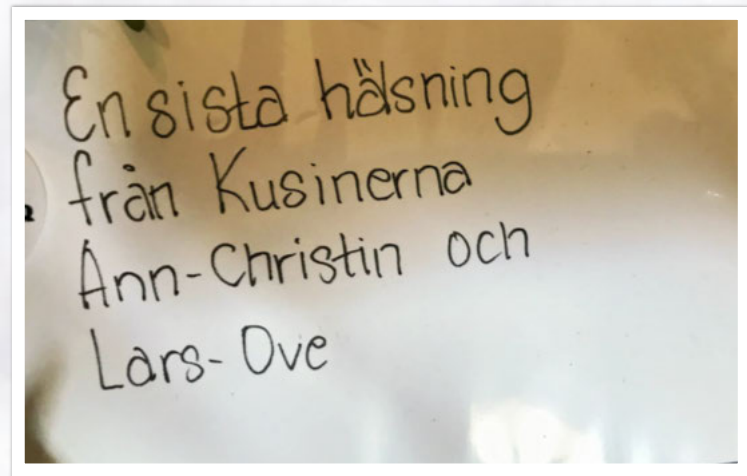 En sista hälsning
från Kusinerna
Ann-Christin och
Lars-Ove